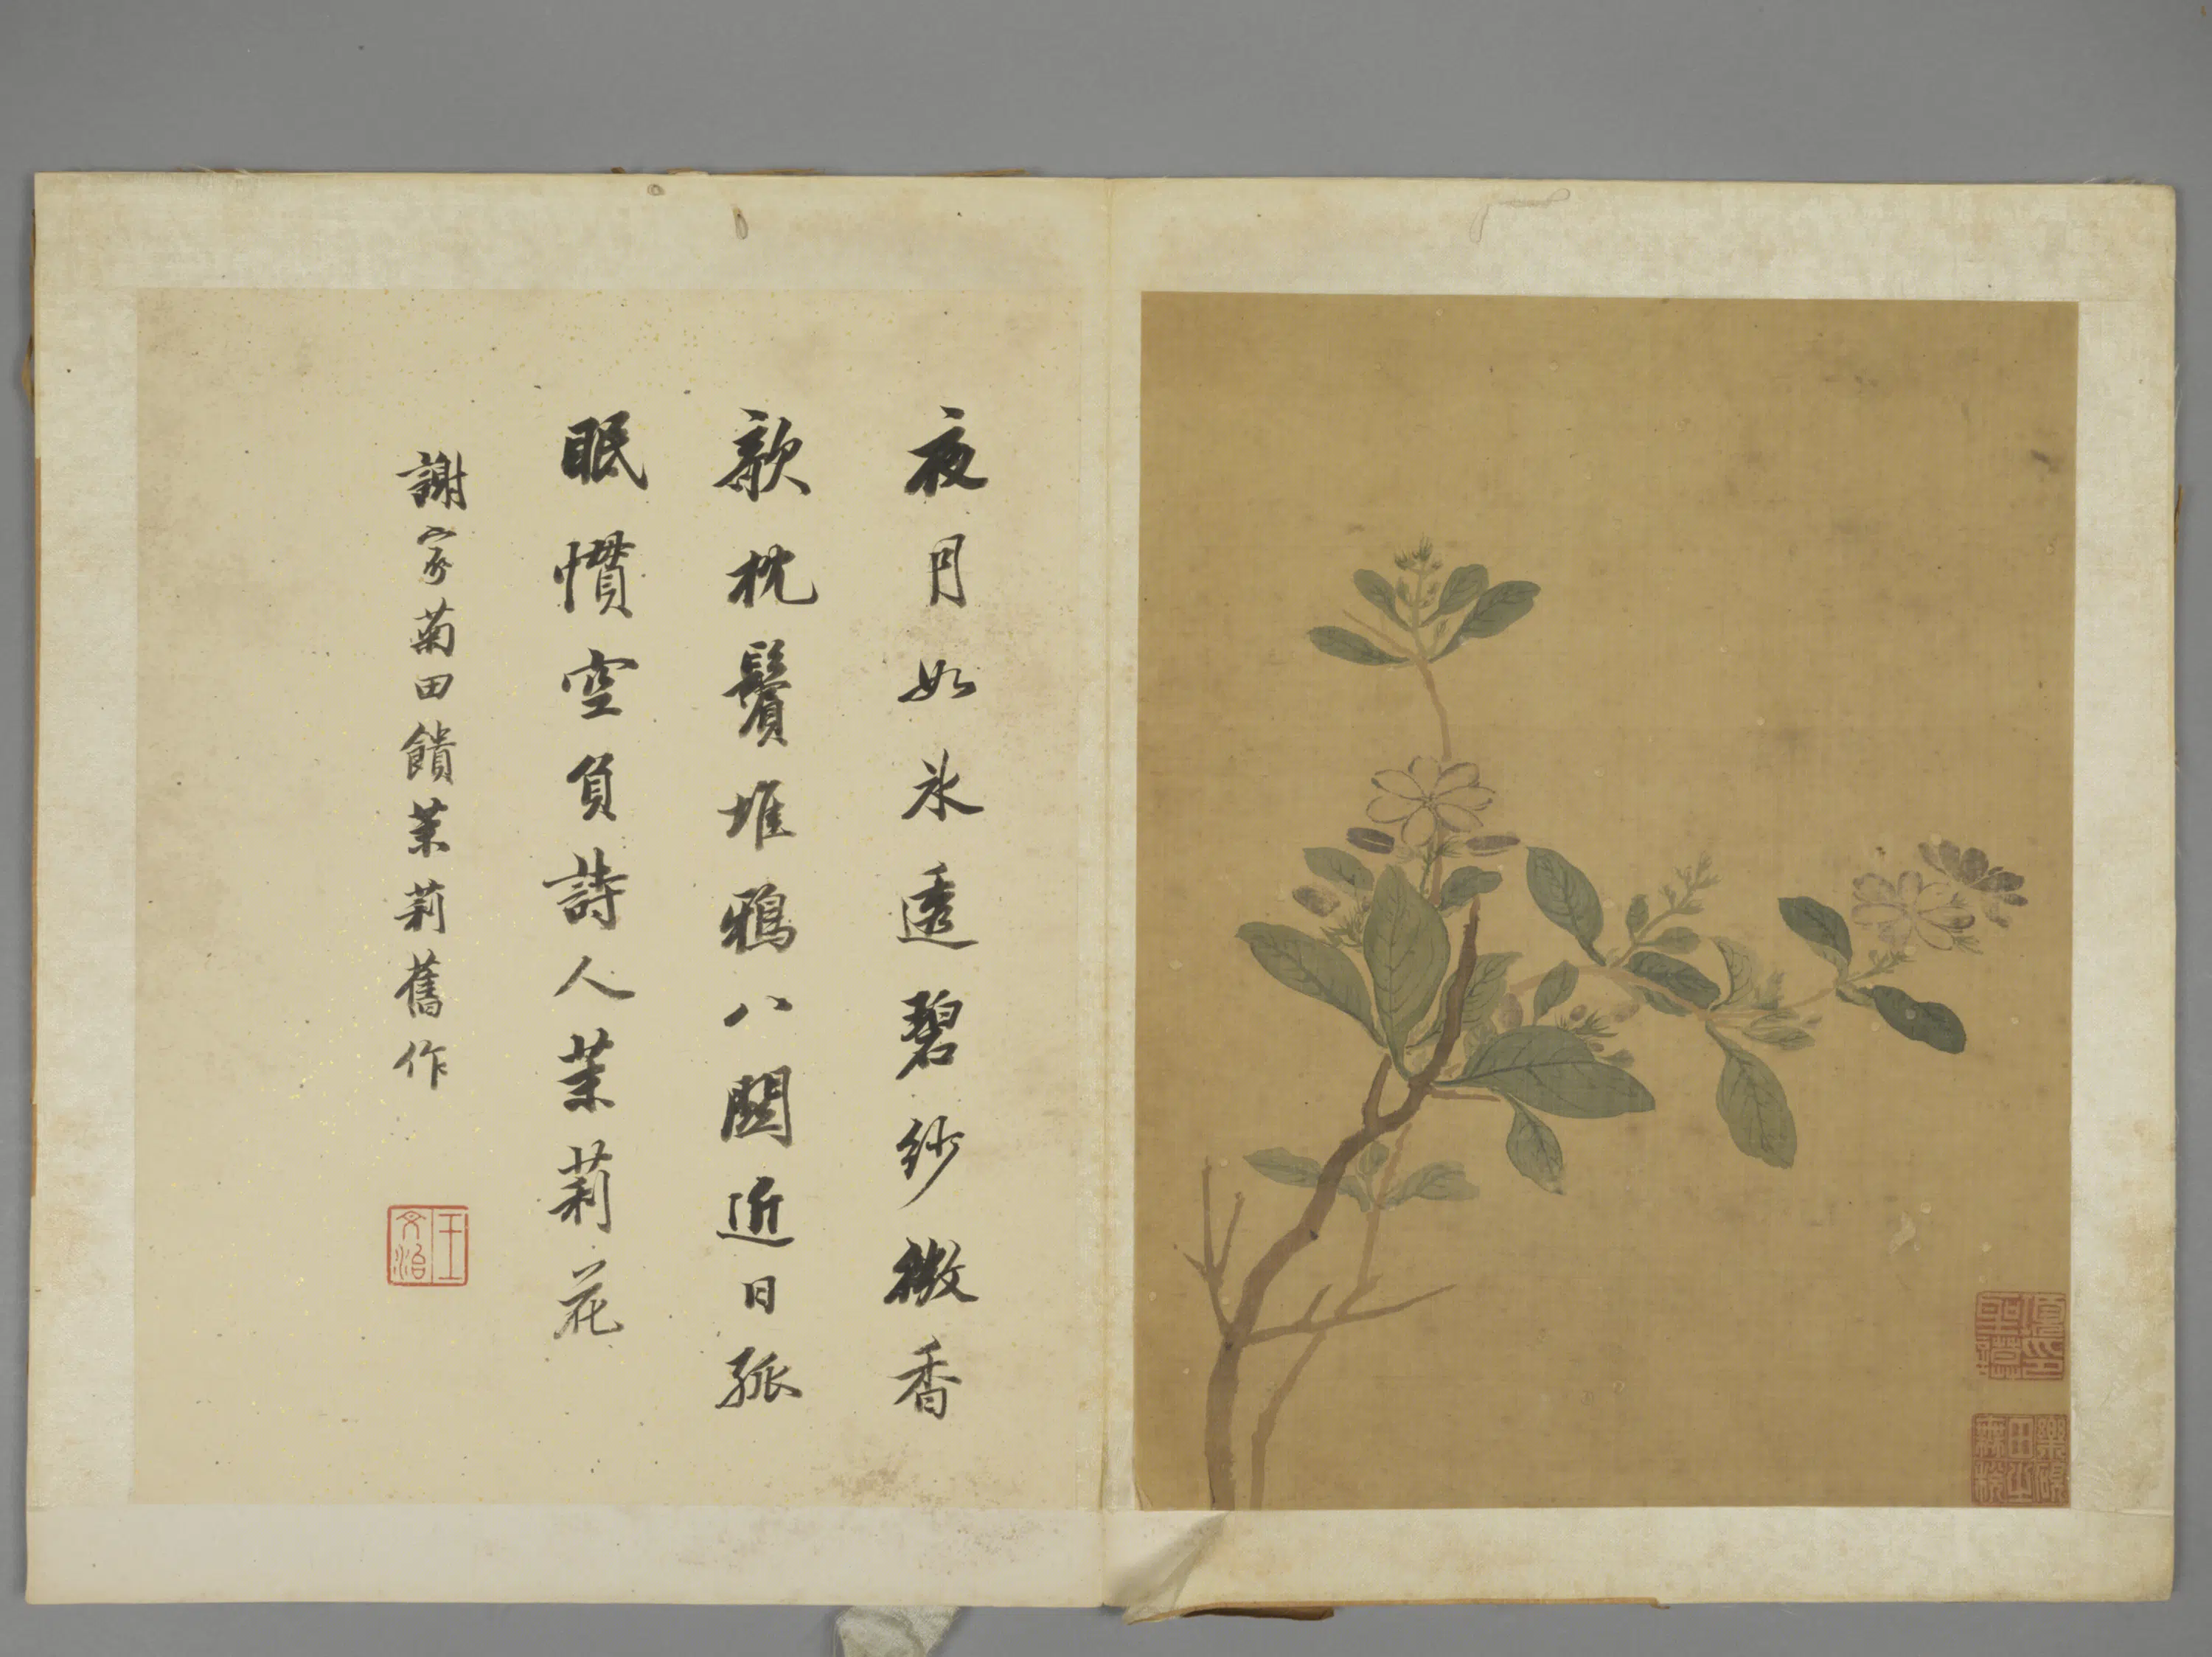 夜月如冰透碧紗微香
欹枕鬢堆鴉八關近日孤
眠慣空負詩人茉莉花
謝家菊田饋茉莉舊作
王文治